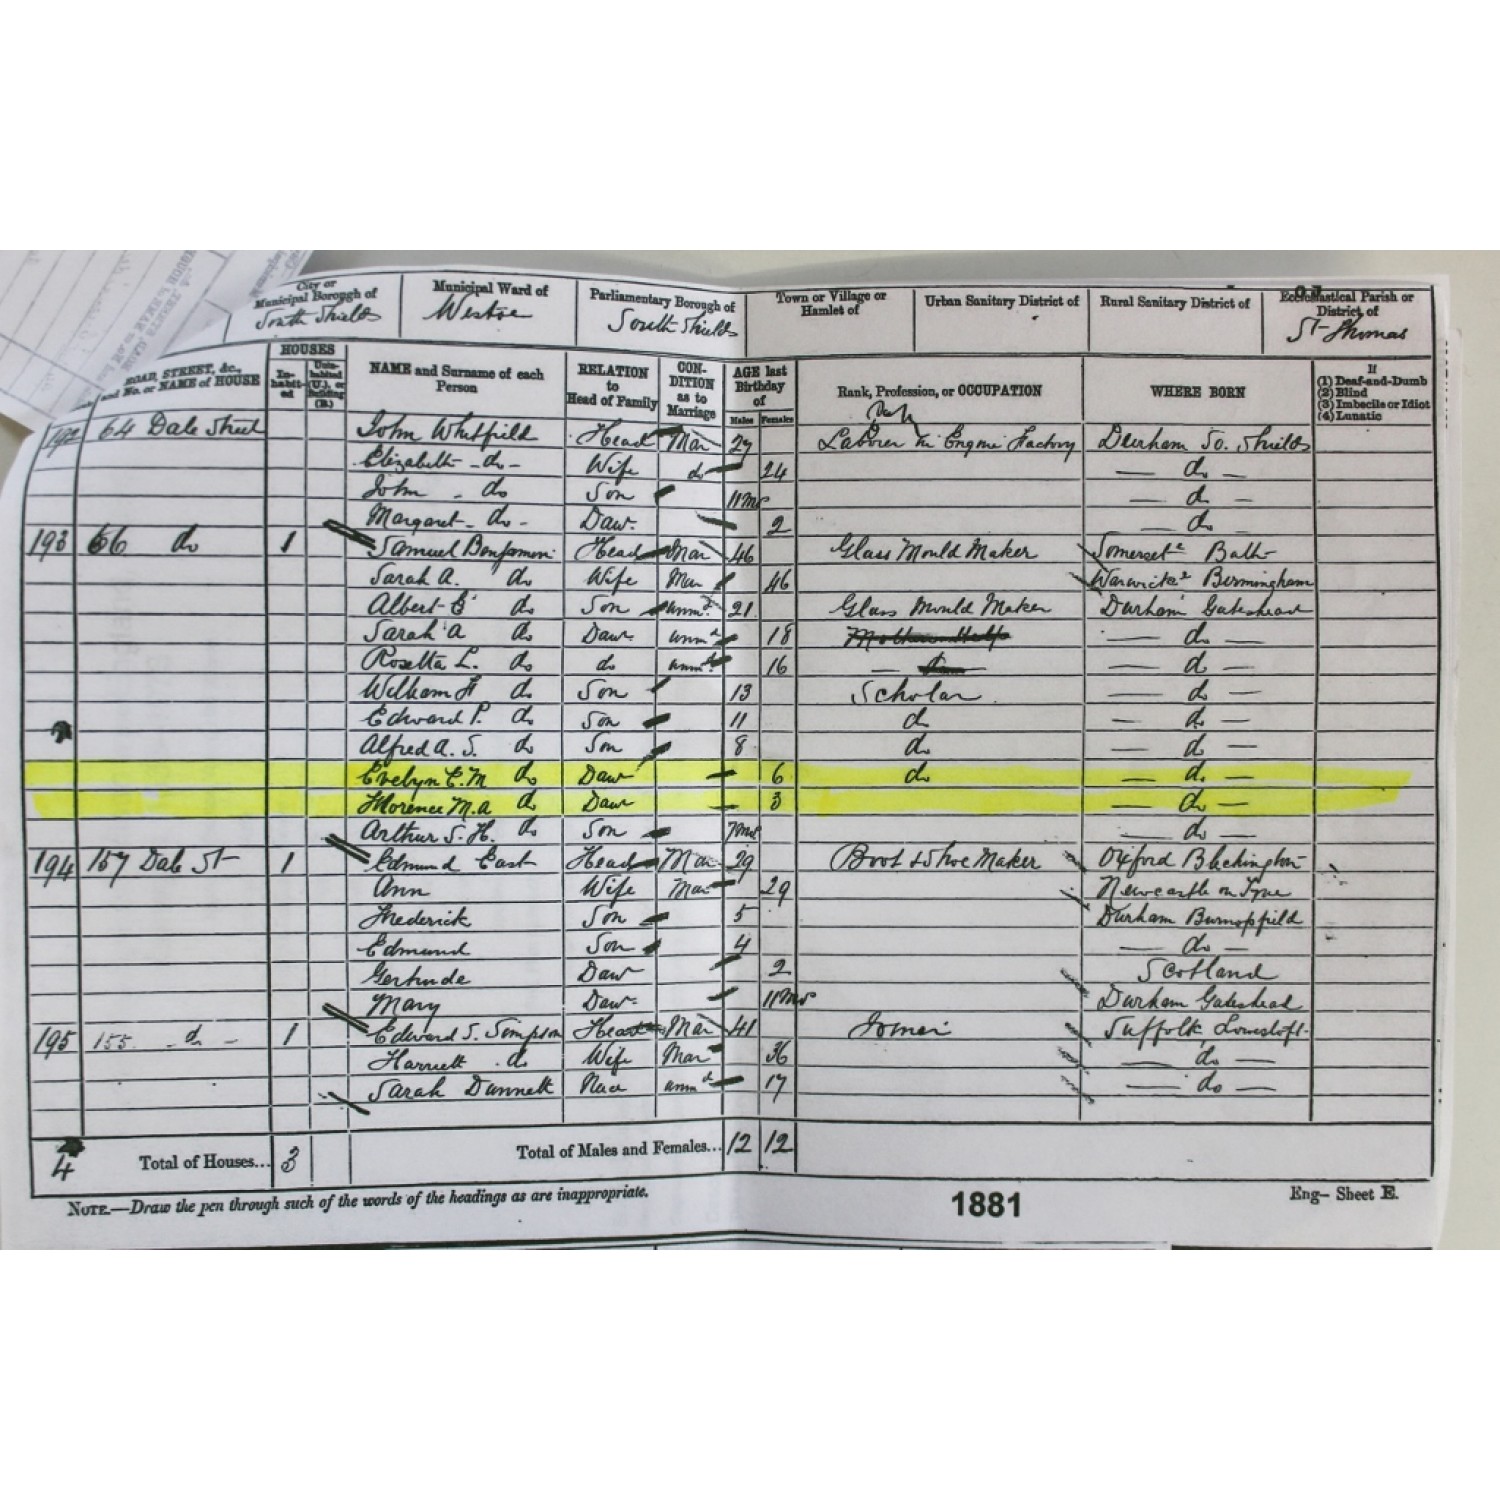 City or Municipal Borough of South Shields
Municipal Ward of Westoe
Parliamentary Borough of South Shields
Town or Village or Hamlet of
Urban Sanitary District of
Rural Sanitary District of
Ecclesiastical Parish or District of St Thomas
ROAD, STREET, &c., and No. or NAME of HOUSE
HOUSES
In-habit-ed
Unin-habited (U.), or Building (B.)
NAME and Surname of each Person
RELATION to Head of Family
CON-DITION as to Marriage
AGE last Birthday of
Males Females
Rank, Profession, or OCCUPATION
WHERE BORN
If
(1) Deaf-and-Dumb
(2) Blind
(3) Imbecile or Idiot
(4) Lunatic
192 64 Dale Street John Whitfield Head Mar 27 Laborer in Engine Factory Durham So. Shields
Elizabeth - do - Wife do 24 — do —
John - do Son 11 Mos — do —
Margaret - do - Daur. 2 — do —
193 66 do 1 Samuel Benjamin Head Mar 46 Glass Mould Maker Somerset Bath
Sarah A. do Wife Mar 46 Warwick Birmingham
Albert do Son unmd 21 Glass Mould Maker Durham Gateshead
Sarah A do Daur unmd 18 — do —
Rosetta L. do do unmd 16 — do —
William H do Son 13 Scholar — do —
Edward P. do Son 11 do — do —
Alfred A. S. do Son 8 do — do —
Evelyn E. M do Daur 6 do — do —
Florence M. A do Daur 3 — do —
Arthur S. H. do Son 7 Mos — do —
194 157 Dale St 1 Edmund East Head Mar 29 Boot & Shoe Maker Oxford Blechington
Ann Wife Mar 29 Newcastle on Tyne
Frederick Son 5 Durham Burnopfield
Edmund Son 4 — do —
Gertrude Daur 2 Scotland
Mary Daur 11 Mos Durham Gateshead
195 155 - do - 1 Edward S. Simpson Head Mar 41 Joiner Suffolk, Lowestoft
Harriett do Wife Mar 36 — do —
Sarah Dunnett Niece unmd 17 — do —
4 Total of Houses... 3 Total of Males and Females... 12 12
NOTE.—Draw the pen through such of the words of the headings as are inappropriate.
1881
Eng— Sheet E.